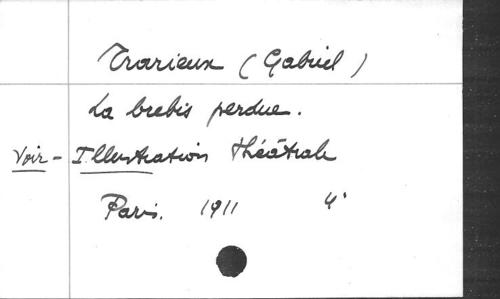 Trarieux (Gabriel)
La brebis perdue.
Voir - Illustration théâtrale
Paris. 1911 4°